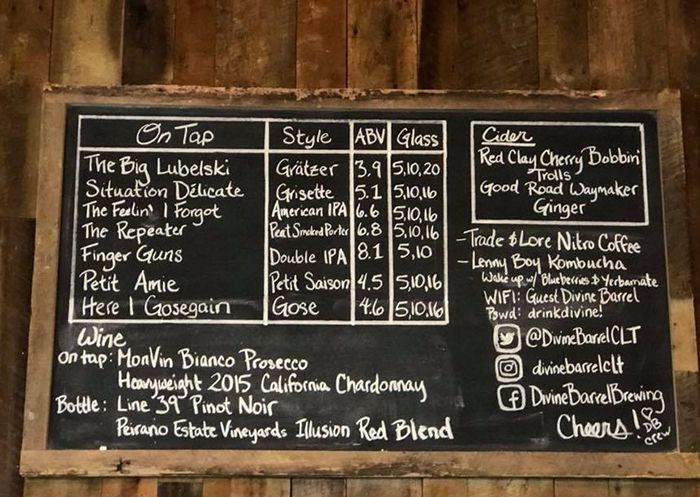 On Tap Style ABV Glass
The Big Lubelski Grätzer 3.9 5,10,20
Situation Délicate Grisette 5.1 5,10,16
The Feelin' I Forgot American IPA 6.6 5,10,16
The Repeater Peat Smoked Porter 6.8 5,10,16
Finger Guns Double IPA 8.1 5,10
Petit Amie Petit Saison 4.5 5,10,16
Here I Gosegain Gose 4.6 5,10,16
Wine
on tap: MonVin Bianco Prosecco
Heavyweight 2015 California Chardonnay
Bottle: Line 39 Pinot Noir
Peirano Estate Vineyards Illusion Red Blend
Cider
Red Clay Cherry Bobbin'
Trolls
Good Road Waymaker
Ginger
- Trade & Lore Nitro Coffee
- Lenny Boy Kombucha
Wake up w/ Blueberries & Yerbamate
WIFI: Guest Divine Barrel
Pswd: drinkdivine!
@DivineBarrelCLT
divinebarrelclt
f DivineBarrelBrewing
Cheers!
DB
crew